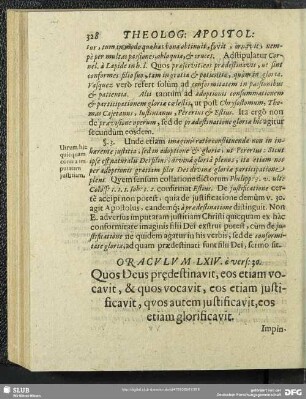 328 THEOLOG: APOSTOL:
tur, tum in modo quo hæc bona obtinuit,
per multas passiones, obloquia, & cruces. Adstipulatur Cor-
nel. à Lapide in h. l. Quos præscivit & prædestinavit, ut sint
conformes filio suo, tam in gratia & patientia, quàm in gloria.
Vasquez verò refert solum ad conformitatem in passionibus
& patientia. Alii tantùm ad adoptionis consummationem
& participationem gloriæ cœlestis, ut post Chrysostomum, Tho-
mas Cajetanus, Justinianus, Pererius & Estius. Ita ergò non
de prædestinatione operum, sed de prædestinatione gloriæ hic agitur
secundùm eosdem.
§. 3. Unde etiam imaginis ratio constituenda non in in-
hærente justitia, sed in adoptione & gloria: ut Pererius: Sicut
ipse est naturalis Dei filius, divinâ gloriâ plenus, ita etiam nos
per adoptionis gratiam filii Dei divinæ gloriæ participatione
pleni. Quem sensum collatione testimoniorum Philipp. 3. ult.
Coloss. 3. 1. Joh. 3. 2. confirmat Estius. De justificatione cer-
tè accipi non potest: quia de justificatione demùm v. 30.
agit Apostolus, eandemq; à prædestinatione distinguit. Non
E. adversus imputatam justitiam Christi quicquam ex hac
conformitate imaginis filii Dei extrui potest, cum de ju-
stificatione ne quidem agatur in his verbis, sed de conformi-
tate gloriæ, ad quam prædestinati sunt filii Dei, sermo sit.
Utrum hic
quicquam
contra im-
putatam
justitiam.
ORACVLVM LXIV. è vers: 30.
Quos Deus prędestinavit, eos etiam vo-
cavit, & quos vocavit, eos etiam justi-
ficavit, qvos autem justificavit, eos
etiam glorificavit.
Impin-
SLUB
Wir führen Wissen.